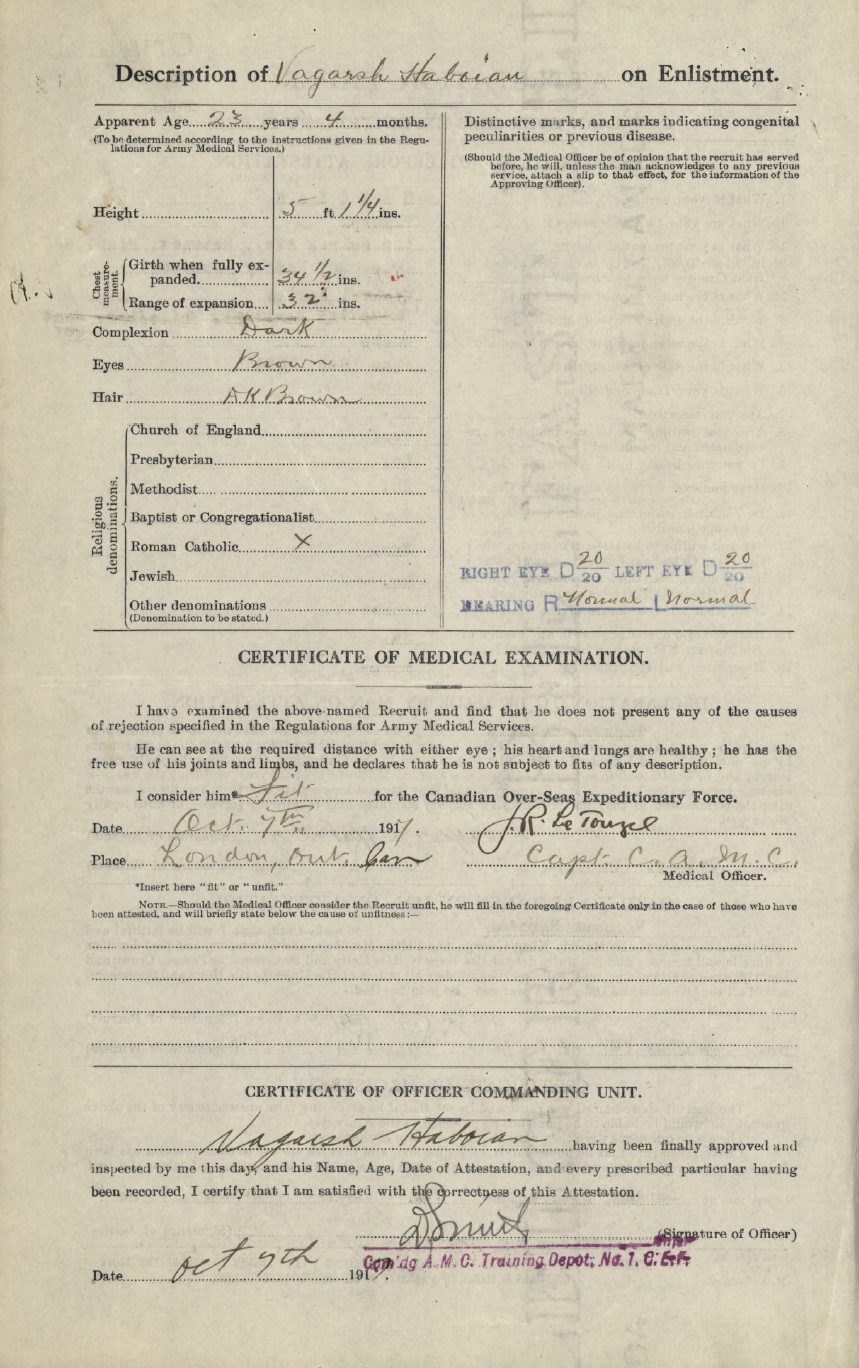 Description of Vagarsh Haboian on Enlistment.
Apparent Age 23 years 4 months.
(To be determined according to the instructions given in the Regu-
lations for Army Medical Services.)
Height 5 ft. 1 1/4 ins.
Chest measure-
ment.
Girth when fully ex-
panded 34 1/2 ins.
Range of expansion 32 ins.
Complexion Dark
Eyes Brown
Hair DK Brown
Religious
denominations.
Church of England
Presbyterian
Methodist
Baptist or Congregationalist
Roman Catholic X
Jewish
Other denominations
(Denomination to be stated.)
Distinctive marks, and marks indicating congenital
peculiarities or previous disease.
(Should the Medical Officer be of opinion that the recruit has served
before, he will, unless the man acknowledges to any previous
service, attach a slip to that effect, for the information of the
Approving Officer).
RIGHT EYE D 20/20 LEFT EYE D 20/20
HEARING R Normal L Normal
CERTIFICATE OF MEDICAL EXAMINATION.
I have examined the above-named Recruit and find that he does not present any of the causes
of rejection specified in the Regulations for Army Medical Services.
He can see at the required distance with either eye; his heart and lungs are healthy; he has the
free use of his joints and limbs, and he declares that he is not subject to fits of any description.
I consider him* Fit for the Canadian Over-Seas Expeditionary Force.
Date Oct. 7th 1917. J.R. Le Touzel
Place London, Ont. Can Capt. C.A.M.C.
Medical Officer.
*Insert here "fit" or "unfit."
NOTE.—Should the Medical Officer consider the Recruit unfit, he will fill in the foregoing Certificate only in the case of those who have
been attested, and will briefly state below the cause of unfitness:—
CERTIFICATE OF OFFICER COMMANDING UNIT.
Vagarsh Haboian having been finally approved and
inspected by me this day, and his Name, Age, Date of Attestation, and every prescribed particular having
been recorded, I certify that I am satisfied with the correctness of this Attestation.
(Signature of Officer)
Com'dg A. M. C. Training Depot, No. 1. C.E.F.
Date Oct 7th 1917.